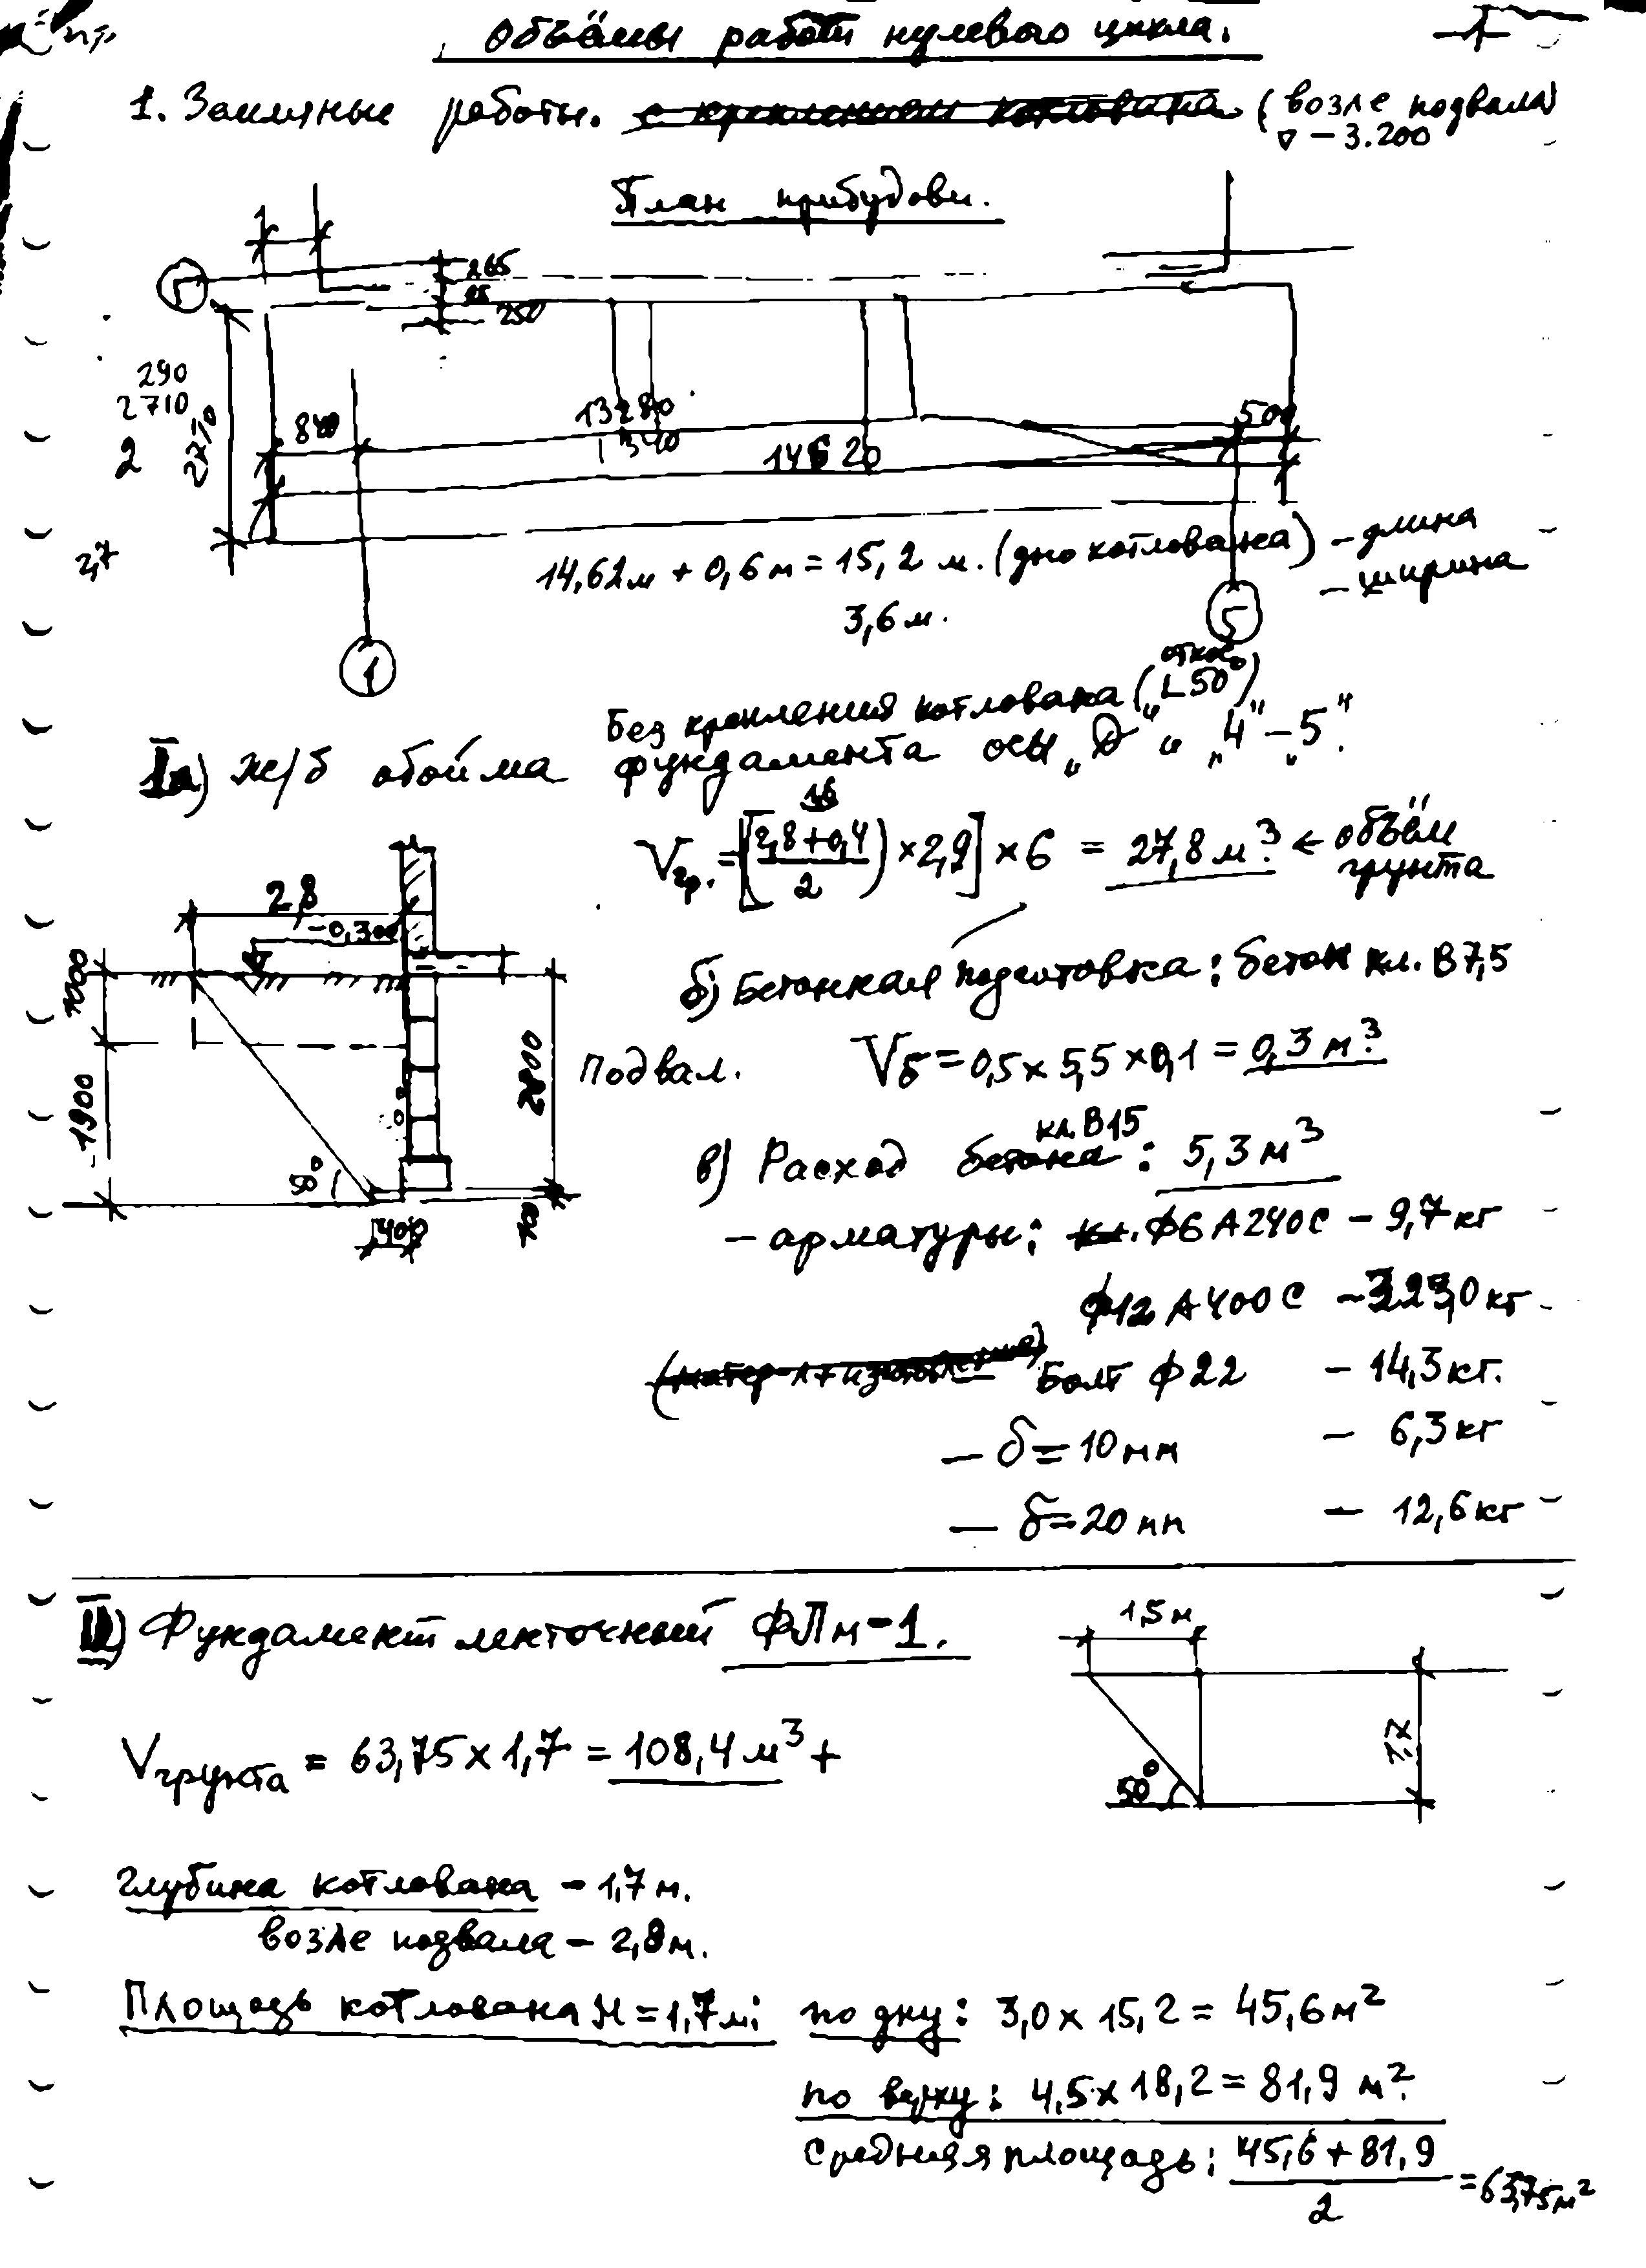 Объёмы работ нулевого цикла.
1
1. Земляные работы. (возле подвала)
▽ -3.200
План прибудови.
Г
265
250
290
2710
2
2710
840
13280
1340
14620
500
2,7
14,62м + 0,6м = 15,2 м. (дно котлована) - длина
3,6 м. - ширина
1
5
откос
Без крепления котлована (∟50°)
Iа) Ж/б обойма фундамента оси „Д“ и „4“-„5“.
16
Vгр. = [(2,8+0,4/2)×2,9]×6 = 27,8 м³ ← объём
грунта
2,8
-0,300
1000
1900
2800
50°
400
Подвал.
б) Бетонная подготовка: бетон кл. В7,5
Vб = 0,5 х 5,5 х 0,1 = 0,3 м³.
кл. В15
в) Расход бетона: 5,3 м³
- арматуры: ф6 А240С - 9,7 кг
ф12 А400С -
Болт ф22 - 14,3 кг.
- δ = 10 мм - 6,3 кг
- δ = 20 мм - 12,6 кг
II) Фундамент ленточный ФЛм-1.
1,5 м
1,7
50°
Vгрунта = 63,75 х 1,7 = 108,4 м³ +
Глубина котлована - 1,7 м.
возле подвала - 2,8 м.
Площадь котлована Н = 1,7 м: по дну: 3,0 х 15,2 = 45,6 м²
по верху: 4,5 х 18,2 = 81,9 м².
Средняя площадь: 45,6 + 81,9 / 2 = 63,75 м²